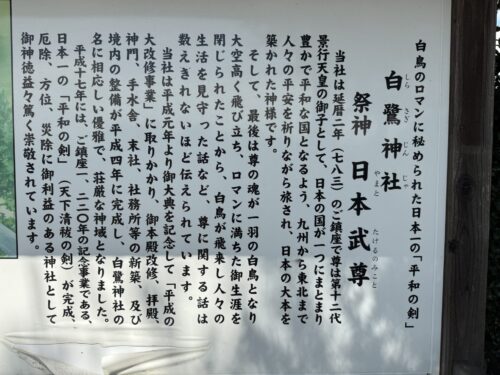 白鳥のロマンに秘められた日本一の「平和の剣」
白鷺神社
しら さぎ じん じゃ
祭神 日本武尊
やまと たけるのみこと
当社は延暦二年（七八三）のご鎮座で尊は第十二代
景行天皇の御子として、日本の国が一つにまとまり
豊かで平和な国となるよう、九州から東北まで
人々の平安を祈りながら旅され、日本の大本を
築かれた神様です。
そして、最後は尊の魂が一羽の白鳥となり
大空高く飛び立ち、ロマンに満ちた御生涯を
閉じられたことから、白鳥が飛来し人々の
生活を見守った話など、尊に関する話は
数えきれないほど伝えられています。
当社は平成元年より御大典を記念して「平成の
大改修事業」に取りかかり、御本殿改修、拝殿、
神門、手水舎、末社、社務所等の新築、及び
境内の整備が平成四年に完成し、白鷺神社の
名に相応しい優雅で、荘厳な神域となりました。
平成十七年には、ご鎮座一、二二〇年の記念事業である、
日本一の「平和の剣」（天下清祓の剣）が完成、
厄除、方位、災除に御利益のある神社として
御神徳益々篤く崇敬されています。